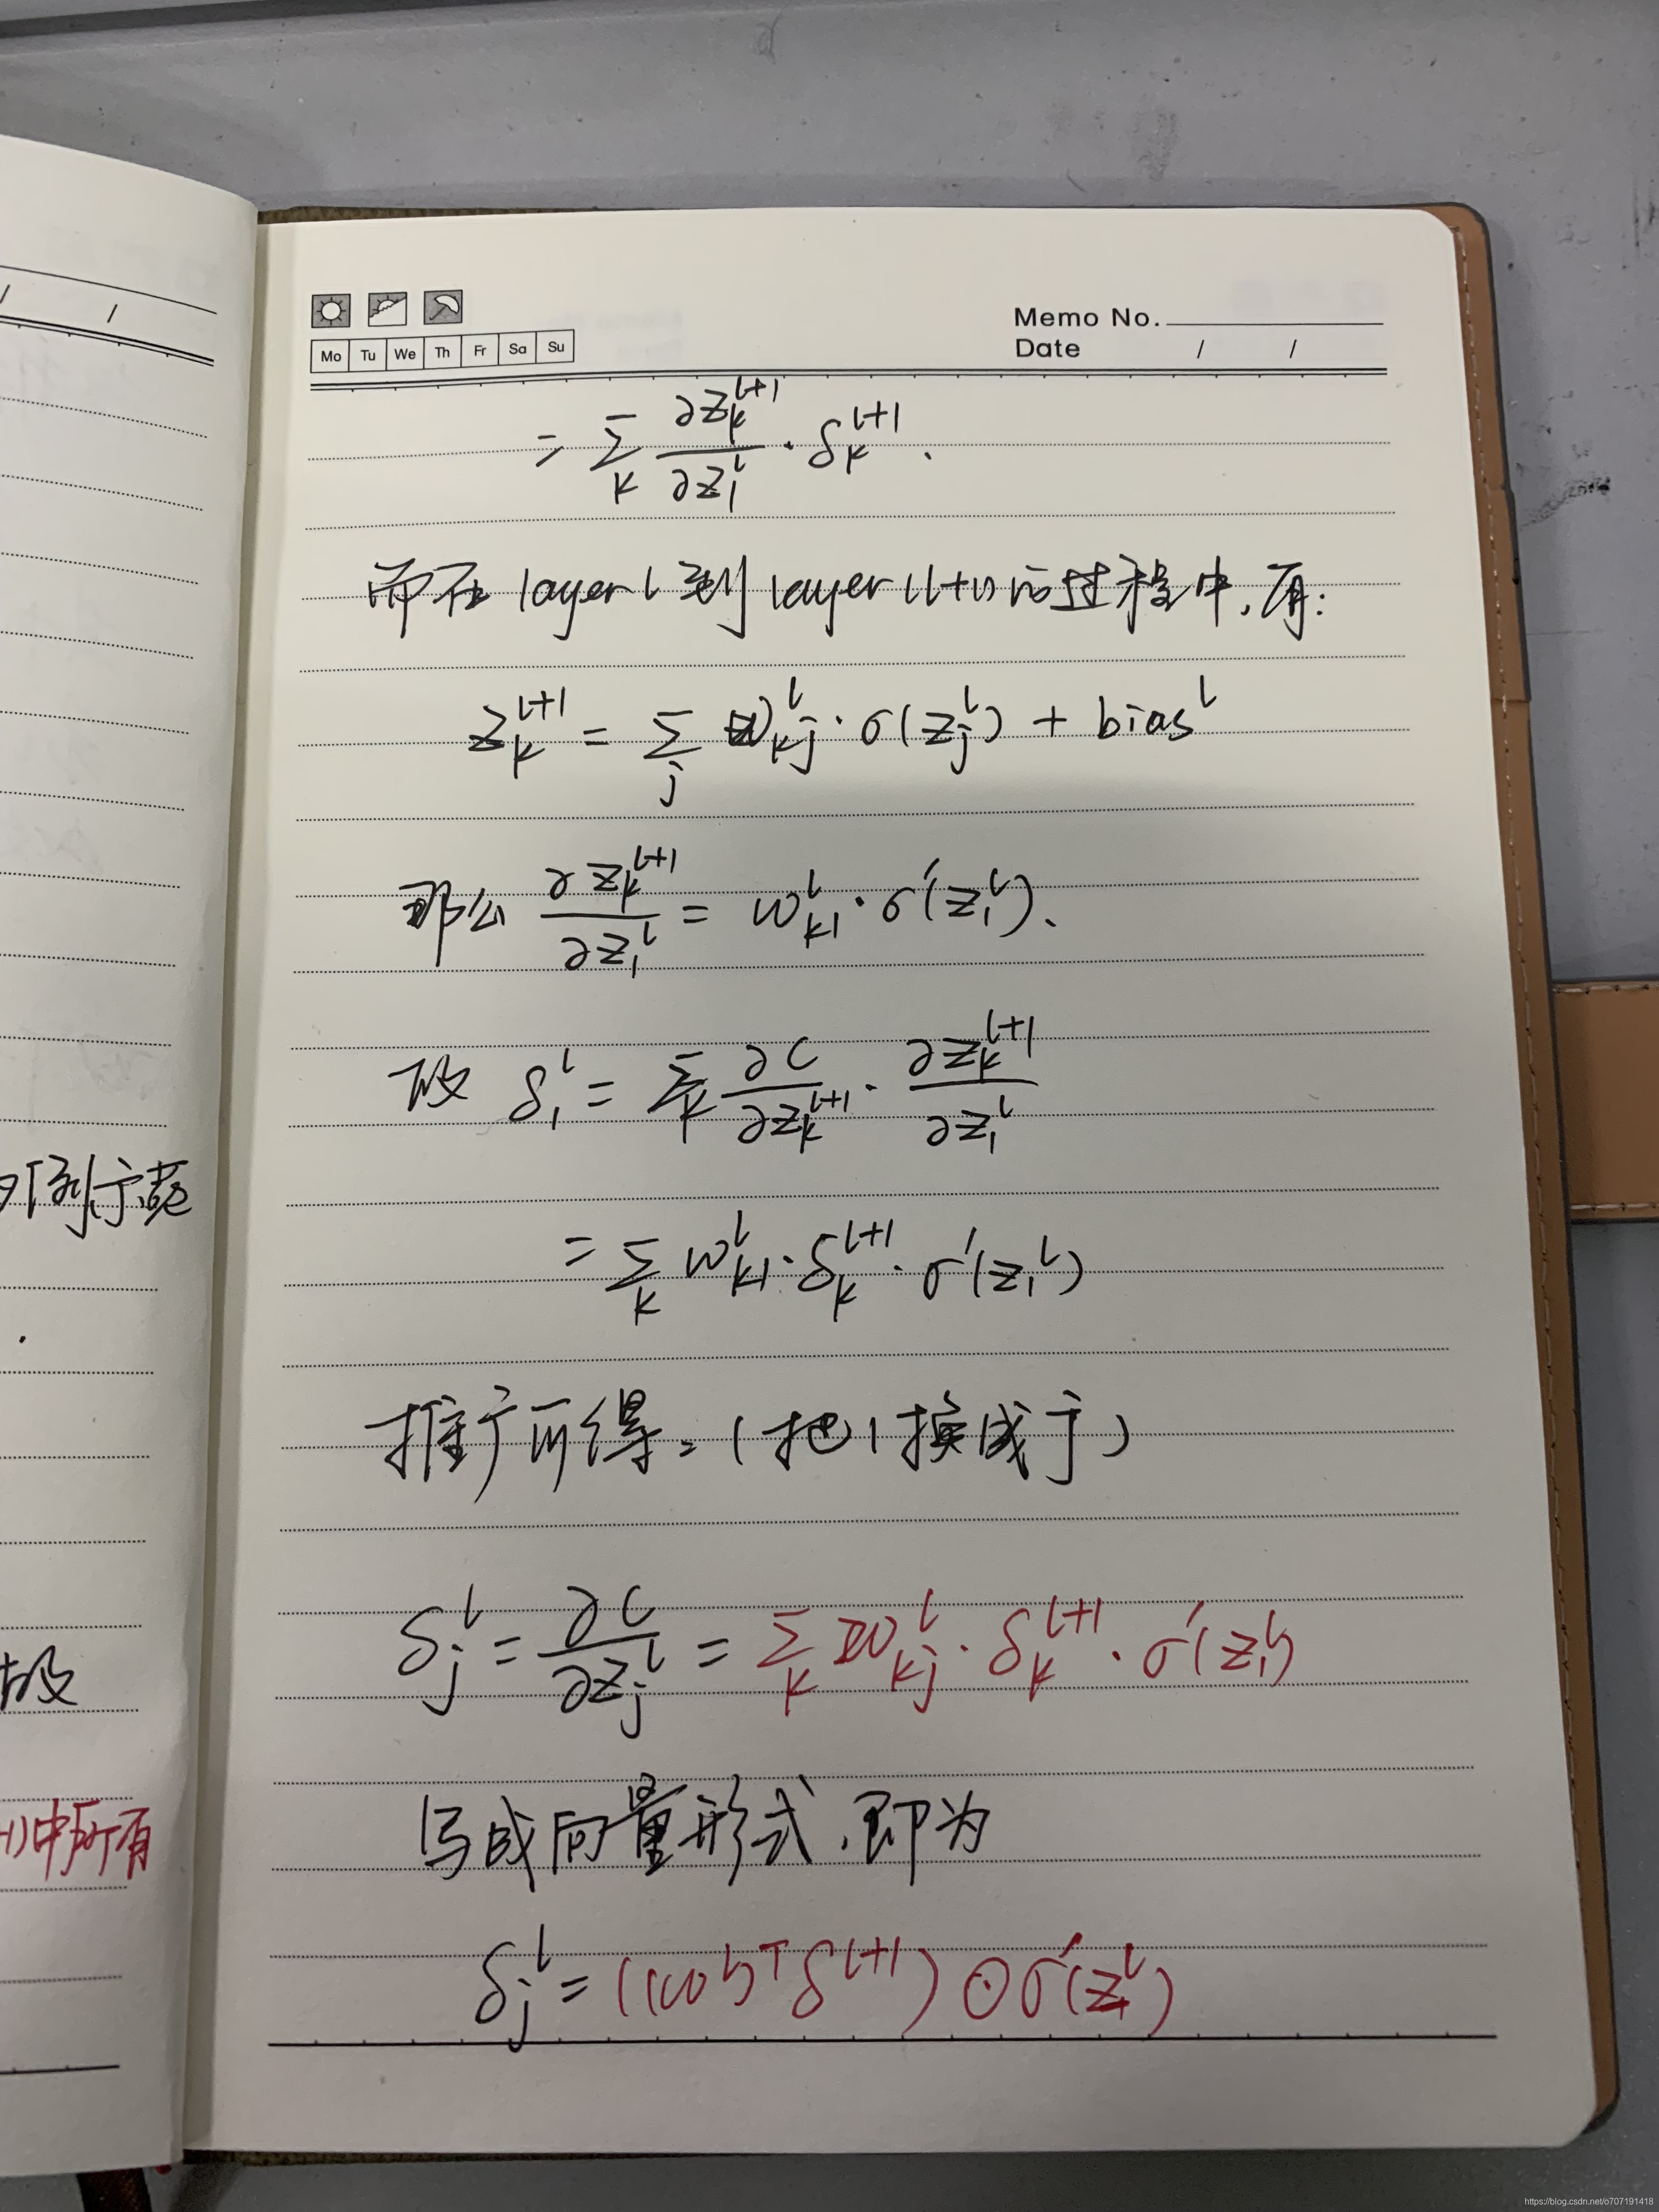 / /
列宁谎
故
中所有
Memo No.
Mo Tu We Th Fr Sa Su
Date / /
= Σ_k ∂z_k^{l+1}/∂z_1^l · δ_k^{l+1}.
而在 layer l 到 layer (l+1) 的过程中,有:
z_k^{l+1} = Σ_j w_{kj}^l · σ(z_j^l) + bias^l
那么 ∂z_k^{l+1}/∂z_1^l = w_{k1}^l · σ'(z_1^l).
故 δ_1^l = Σ_k ∂C/∂z_k^{l+1} · ∂z_k^{l+1}/∂z_1^l
= Σ_k w_{k1}^l · δ_k^{l+1} · σ'(z_1^l)
推广而得:(把1换成j)
δ_j^l = ∂C/∂z_j^l = Σ_k w_{kj}^l · δ_k^{l+1} · σ'(z_1^l)
写成向量形式,即为
δ_j^l = ((w^l)^T δ^{l+1}) ⊙ σ'(z^l)
https://blog.csdn.net/o707191418